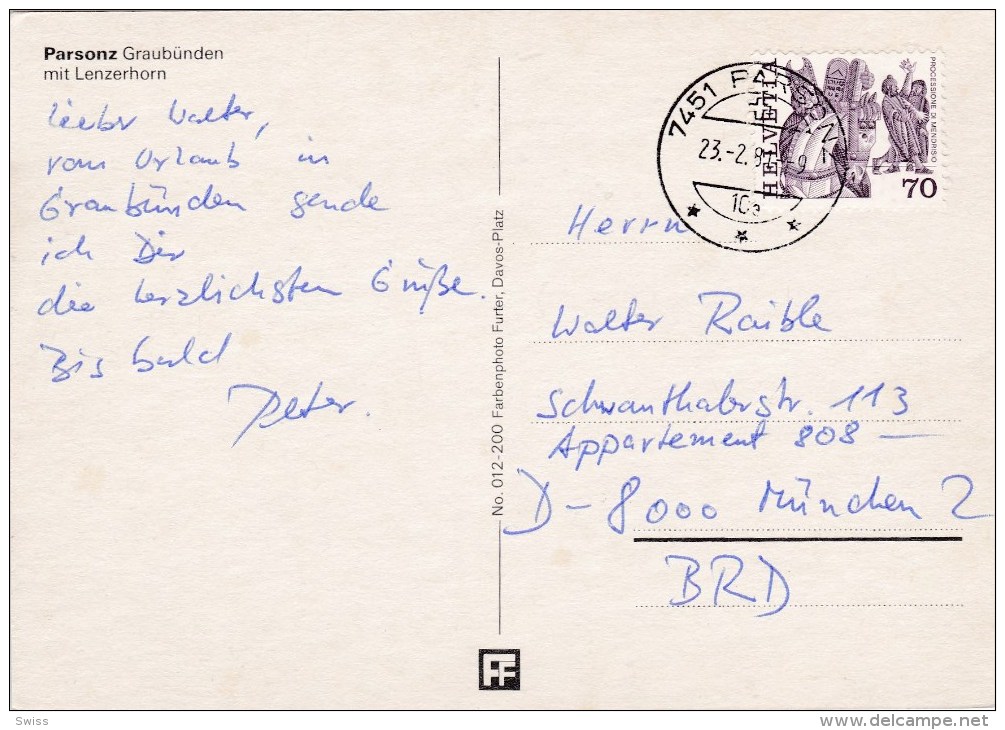 Parsonz Graubünden
mit Lenzerhorn
Lieber Walter,
vom Urlaub in
Graubünden sende
ich Dir
die herzlichsten Grüße.
Bis bald
Peter.
No. 012-200 Farbenphoto Furter, Davos-Platz
FF
7451 PARSONZ
23.-2.8 -9
10a
HELVETIA
PROCESSIONE DI MENDRISIO
70
Herrn
Walter Raible
Schwanthalerstr. 113
Appartement 808 —
D-8000 München 2
BRD
Swiss
www.delcampe.net